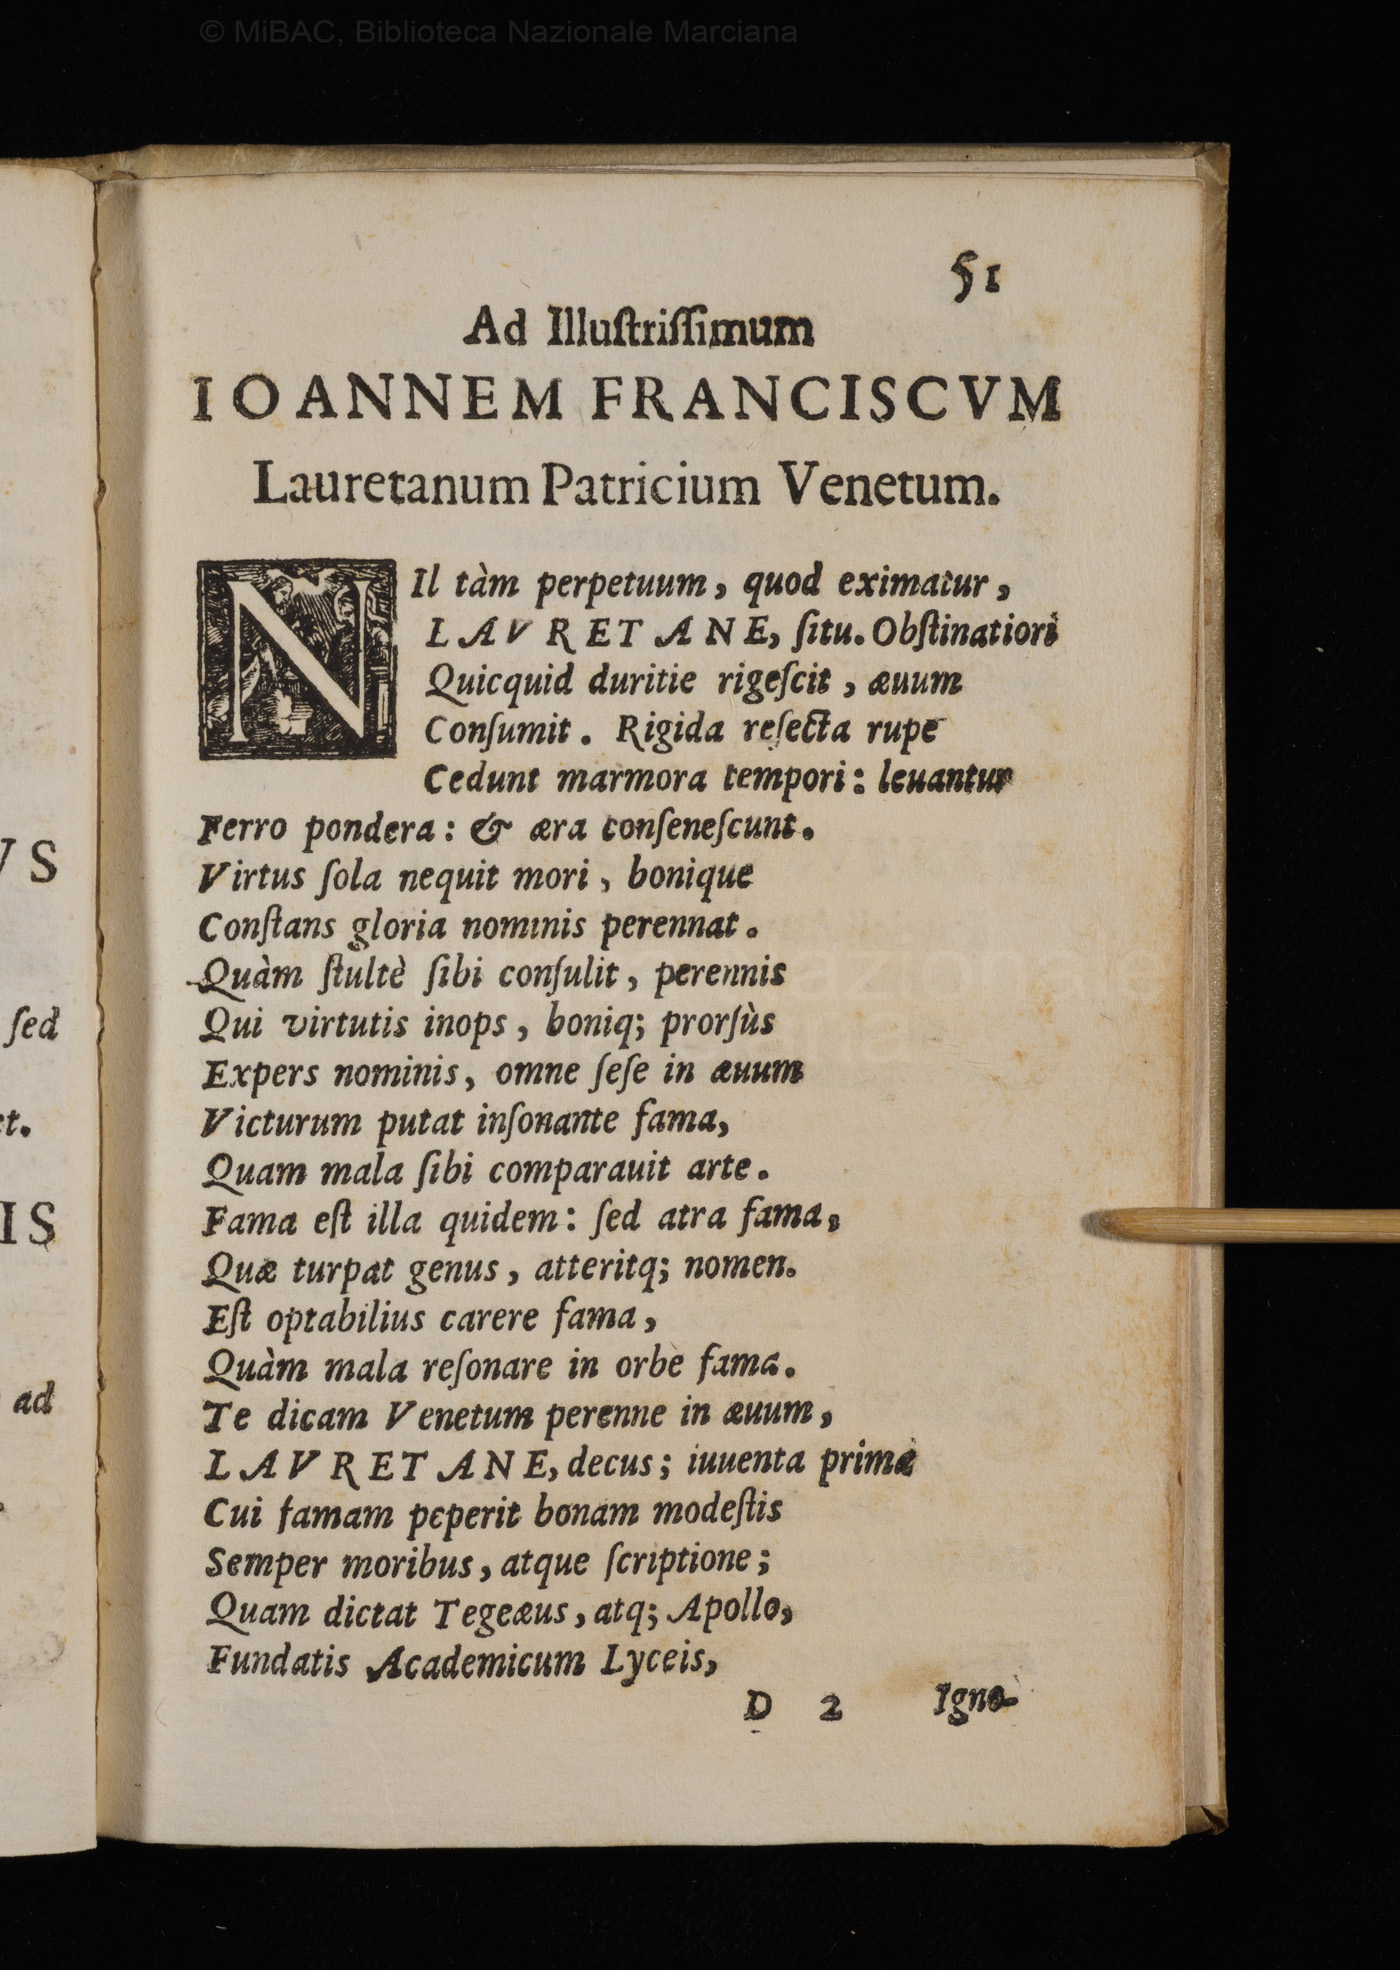 © MiBAC, Biblioteca Nazionale Marciana
51
Ad Illuſtriſſimum
IOANNEM FRANCISCVM
Lauretanum Patricium Venetum.
NIl tàm perpetuum, quod eximatur,
LAVRETANE, ſitu. Obſtinatiori
Quicquid duritie rigeſcit, æuum
Conſumit. Rigida reſecta rupe
Cedunt marmora tempori: leuantur
Ferro pondera: & æra conſeneſcunt.
Virtus ſola nequit mori, bonique
Conſtans gloria nominis perennat.
Quàm ſtultè ſibi conſulit, perennis
Qui virtutis inops, boniq; prorſùs
Expers nominis, omne ſeſe in æuum
Victurum putat inſonante fama,
Quam mala ſibi comparauit arte.
Fama eſt illa quidem: ſed atra fama,
Quæ turpat genus, atteritq; nomen.
Eſt optabilius carere fama,
Quàm mala reſonare in orbe fama.
Te dicam Venetum perenne in æuum,
LAVRETANE, decus; iuuenta prima
Cui famam peperit bonam modeſtis
Semper moribus, atque ſcriptione;
Quam dictat Tegeæus, atq; Apollo,
Fundatis Academicum Lyceis,
D 2 Igno-
VS
ſed
et.
IS
ad